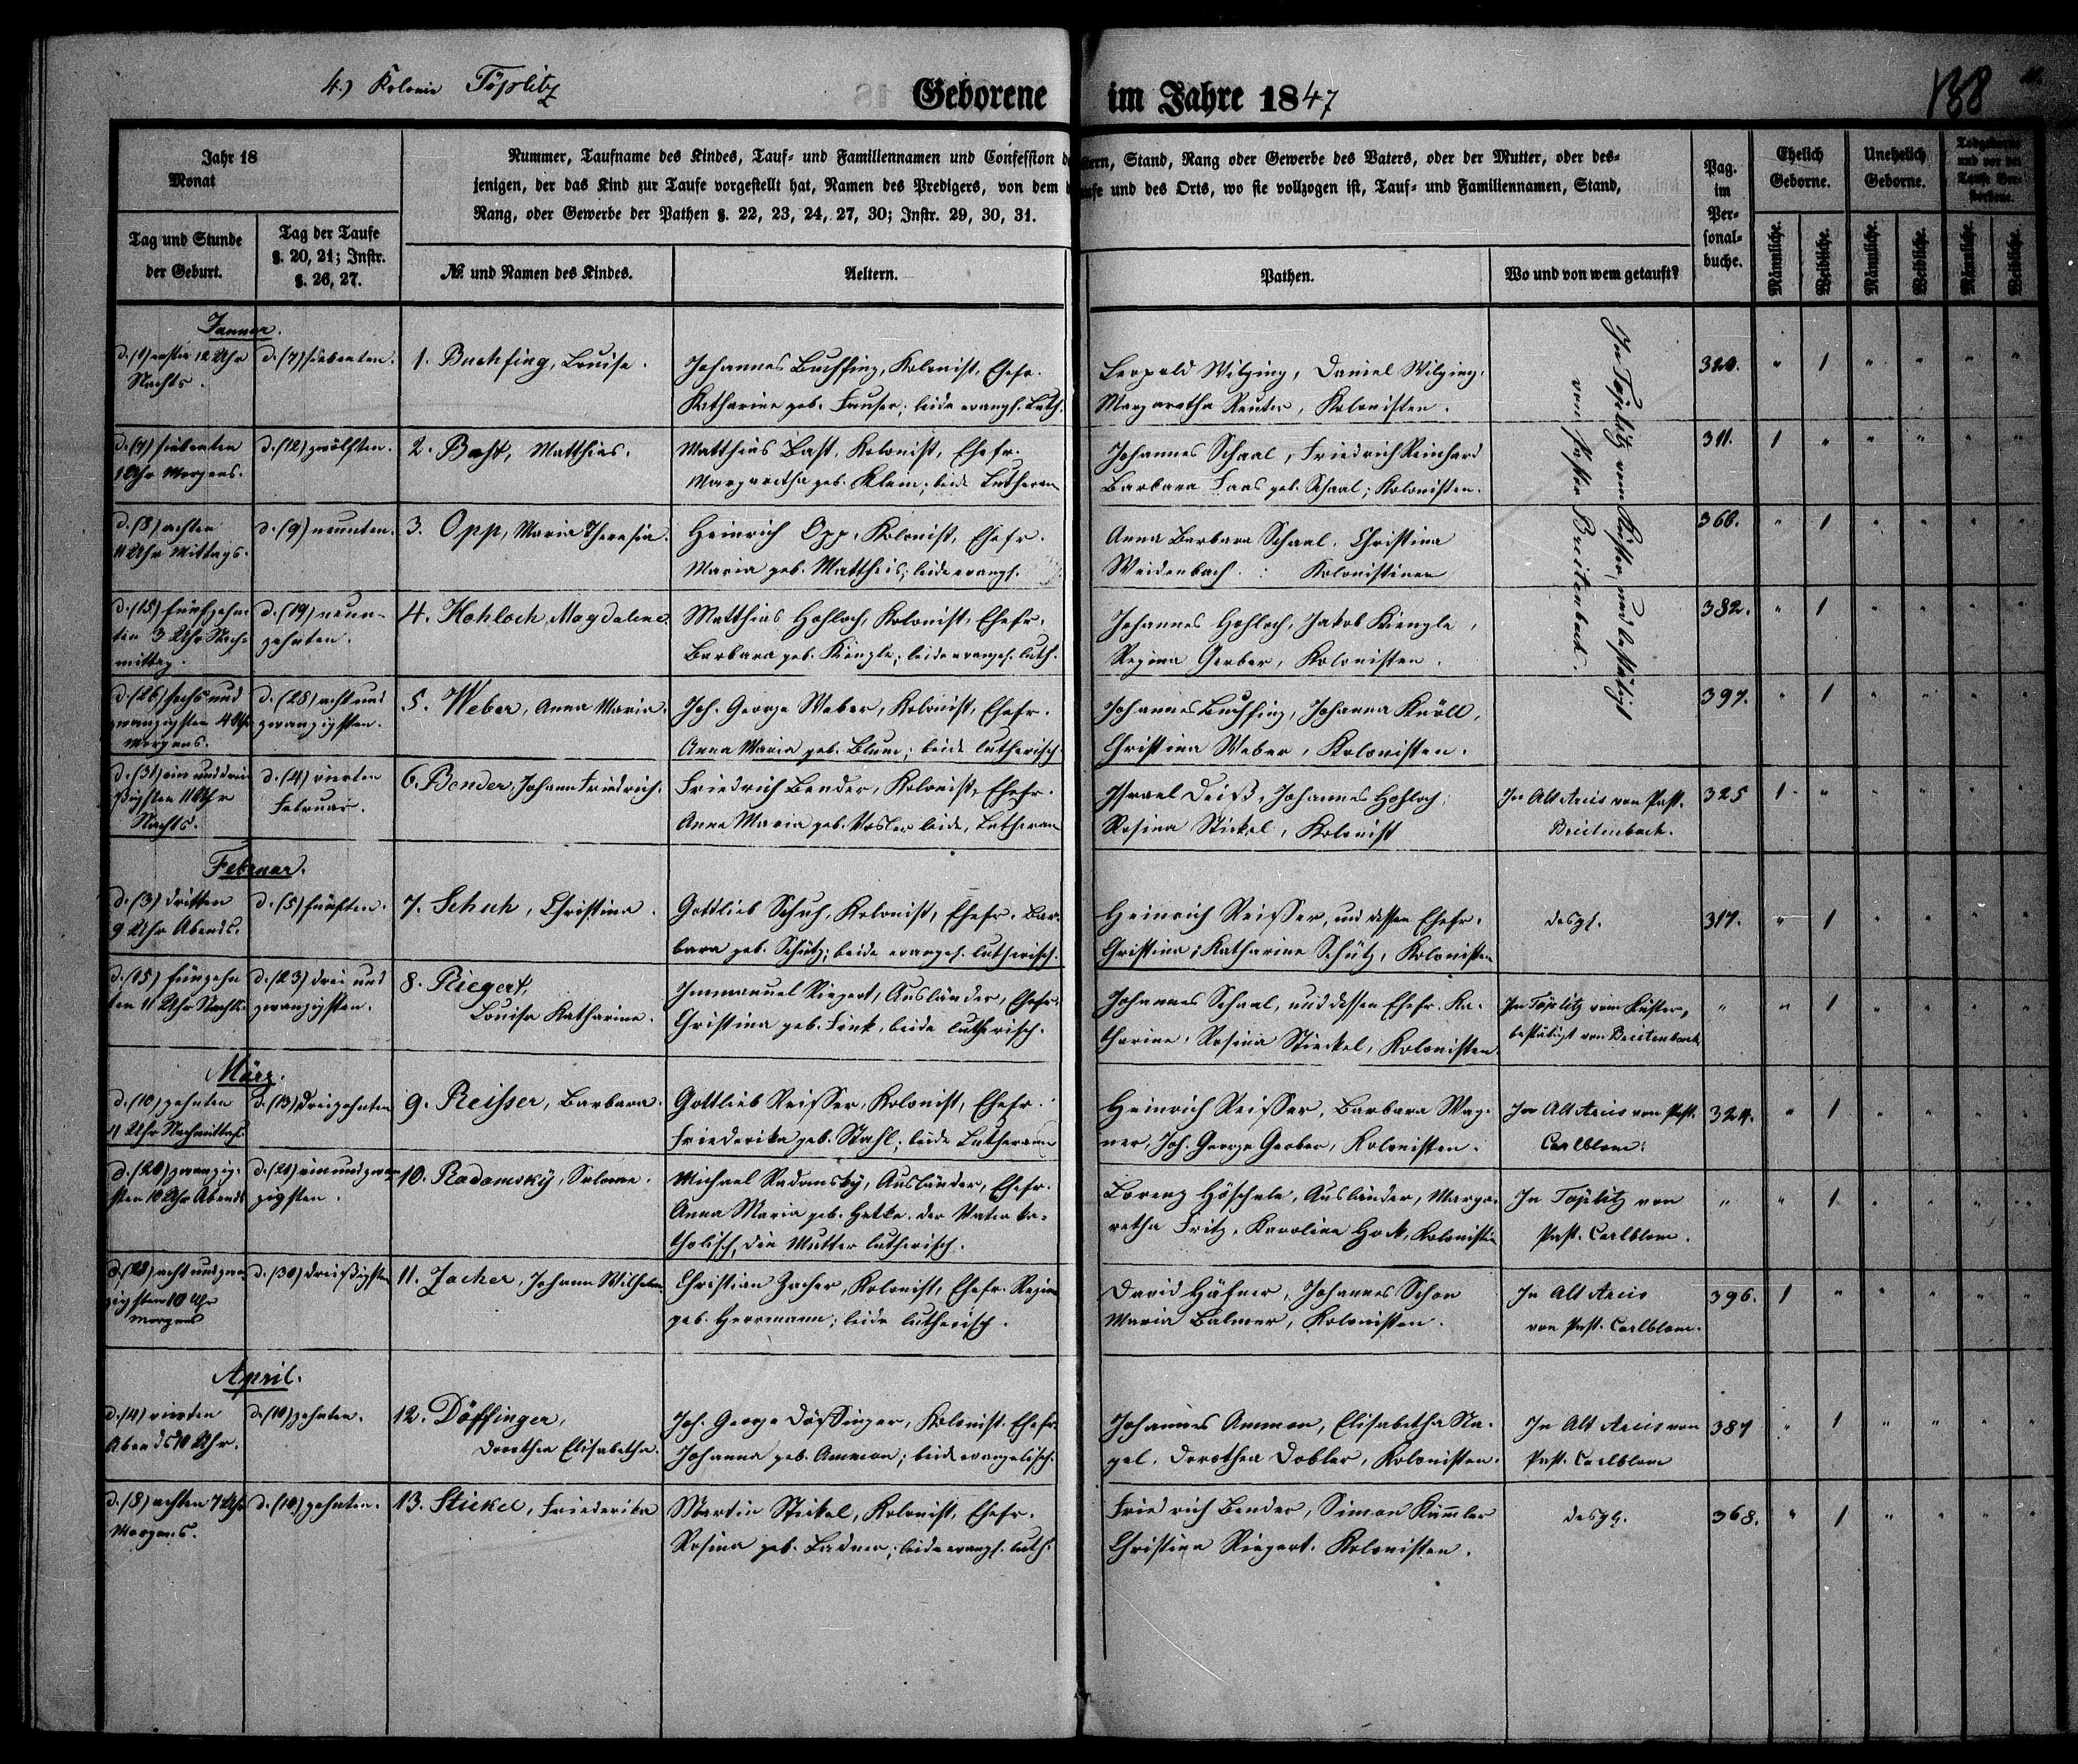 4.) Kolonie Töplitz
Geborene im Jahre 1847
188
Jahr 18
Monat
Nummer, Taufname des Kindes, Tauf- und Familiennamen und Confession der Aeltern, Stand, Rang oder Gewerbe des Vaters, oder der Mutter, oder des-
jenigen, der das Kind zur Taufe vorgestellt hat, Namen des Predigers, von dem die Taufe und des Orts, wo sie vollzogen ist, Tauf- und Familiennamen, Stand,
Rang, oder Gewerbe der Pathen §. 22, 23, 24, 27, 30; Instr. 29, 30, 31.
Pag.
im
Per-
sonal-
buche.
Ehelich
Geborne.
Unehelich
Geborne.
Todgeborne
und vor der
Taufe Ver-
storbene.
Tag und Stunde
der Geburt.
Tag der Taufe
§. 20, 21; Instr.
§. 26, 27.
№ und Namen des Kindes.
Aeltern.
Pathen.
Wo und von wem getauft?
Männliche.
Weibliche.
Männliche.
Weibliche.
Männliche.
Weibliche.
Januar.
d. (1) ersten 12 Uhr
Nachts.
d. (7) siebenten.
1. Buchfing, Louise.
Johannes Buchfing, Kolonist, Ehefr.
Katharine geb. Fauser; beide evangl. Luth.
Leopold Witzing, Daniel Witzing,
Margaretha Reuter, Kolonisten.
In Töplitz vom Küster, und bestätigt
von Pastor Breitenbach.
320. " 1 " " " "
d. (7) siebenten
1 Uhr Morgens.
d. (12) zwölften.
2. Bast, Matthias.
Matthias Bast, Kolonist, Ehefr.
Margaretha geb. Klein; beide Lutheran
Johannes Schaal, Friedrich Reinhard
Barbara Faas geb. Schaal; Kolonisten.
311. 1 " " " " "
d. (8) achten
11 Uhr Mittags.
d. (9) neunten.
3. Opp, Maria Theresia.
Heinrich Opp, Kolonist, Ehefr.
Maria geb. Mattheis; beide evangl.
Anna Barbara Schaal, Christina
Weidenbach. : Kolonistinen
366. " 1 " " " "
d. (15) fünfzehn
ten 3 Uhr Nach-
mittag.
d. (19) neun-
zehnten.
4. Hohloch, Magdalena
Matthias Hohloch, Kolonist, Ehefr.
Barbara geb. Kienzle; beide evangel. luth.
Johannes Hohloch, Jakob Kienzle,
Regina Gerber, Kolonisten.
382. " 1 " " " "
d. (26) sechs und
zwanzigsten 4 Uhr
Morgens.
d. (28) acht und
zwanzigsten.
5. Weber, Anna Maria.
Joh. George Weber, Kolonist, Ehefr.
Anna Maria geb. Blum; beide lutherisch.
Johannes Buchfing, Johanna Knöll,
Christina Weber, Kolonisten.
397. " 1 " " " "
d. (31) ein und drei
ßigsten 11 Uhr
Nachts.
d. (4) vierten
Februar.
6. Bender, Johann Friedrich.
Friedrich Bender, Kolonist, Ehefr.
Anna Maria geb. Vosler beide, Lutheran
Israel Deiß, Johannes Hohloch,
Rosina Stickel, Kolonist
In Alt Arcis von Past.
Breitenbach.
325 1 " " " " "
Februar.
d. (3) dritten
9 Uhr Abends.
d. (5) fünften.
7. Schuh, Christina.
Gottlieb Schuh, Kolonist, Ehefr. Bar-
bara geb. Schütz; beide evangel. lutherisch.
Heinrich Reisser, und dessen Ehefr.
Christina; Katharine Schütz, Kolonisten
desgl.
317. " 1 " " " "
d. (15) fünzehn
ten 11 Uhr Nachts.
d. (23) drei und
zwanzigsten.
8. Riegert,
Louise Katharine.
Immanuel Riegert, Ausländer, Ehefr.
Christina geb. Fink, beide lutherisch.
Johannes Schaal, und dessen Ehefr. Ka-
tharine, Rosina Stickel, Kolonisten
In Töplitz vom Küster,
bestätigt von Breitenbach
" " 1 " " " "
März.
d. (10) zehnten
4 Uhr Nachmittags.
d. (13) dreizehnten
9. Reisser, Barbara.
Gottlieb Reisser, Kolonist, Ehefr.
Friederika geb. Stahl; beide Lutheraner
Heinrich Reisser, Barbara Wag-
ner, Joh. George Gerber, Kolonisten.
In Alt Arcis von Past.
Carlblom.
324. " 1 " " " "
d. (20) zwanzig-
sten 10 Uhr Abends
d. (21) ein und zwan
zigsten.
10. Radomsky, Salome.
Michael Radomsky, Ausländer, Ehefr.
Anna Maria geb. Hetke. der Vater ka-
tholisch, die Mutter lutherisch.
Lorenz Höschele, Ausländer, Marga-
retha Fritz, Karolina Hock, Kolonisten
In Töplitz von
Past. Carlblom.
" " 1 " " " "
d. (28) acht und zwan
zigsten 10 Uhr
Morgens
d. (30) dreißigsten
11. Zacher, Johann Wilhelm.
Christian Zacher, Kolonist, Ehefr. Regina
geb. Herrmann; beide lutherisch.
David Häfner, Johannes Schon
Maria Balmer, Kolonisten.
In Alt Arcis
von Past. Carlblom.
396. 1 " " " " "
April.
d. (4) vierten
Abends 10 Uhr.
d. (10) zehnten.
12. Döffinger,
Dorothea Elisabetha.
Joh. George Döffinger, Kolonist. Ehefr.
Johanna geb. Ammon; beide evangelisch.
Johannes Ammon, Elisabetha Na-
gel, Dorothea Dobler, Kolonisten.
In Alt Arcis von
Past. Carlblom
387 " 1 " " " "
d. (8) achten 7 Uhr
Morgens.
d. (10) zehnten.
13. Stickel, Friederika
Martin Stickel, Kolonist, Ehefr.
Rosina geb. Ladner; beide evangl. luth.
Friedrich Bender, Simon Kümler
Christina Riegert. Kolonisten.
desgl.
368. " 1 " " " "